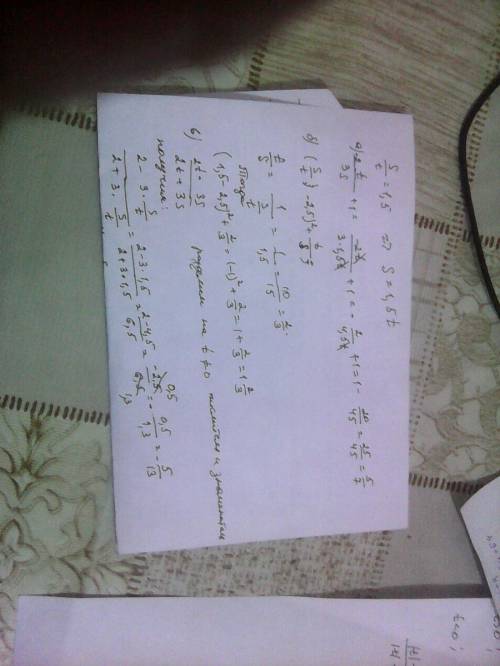 S/t = 1,5 => S = 1,5t
a) -2t/3S + 1 = -2t/(3·1,5t) + 1 = -2/4,5 + 1 = 1 - 20/45 = 25/45 = 5/7
б) (S/t - 2,5)² + t/S
t/S = 1/(S/t) = 1/1,5 = 10/15 = 2/3.
Тогда
(1,5-2,5)² + 2/3 = (-1)² + 2/3 = 1 + 2/3 = 1 2/3
в) (2t - 3S)/(2t + 3S) разделим на t ≠ 0 числитель и знаменатель
получим:
(2 - 3·S/t)/(2 + 3·S/t) = (2-3·1,5)/(2+3·1,5) = (2-4,5)/6,5 = -2,5/6,5 = -0,5/1,3 = -5/13
t<0;